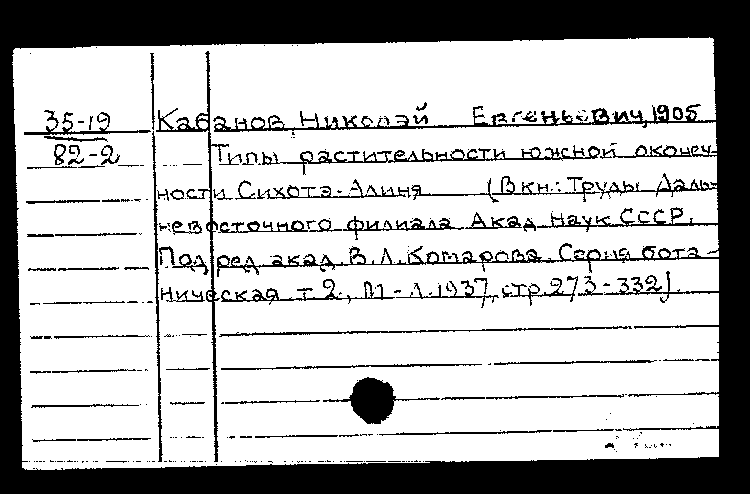 35-19 Кабанов, Николай Евгеньевич, 1905
82-2 Типы растительности южной оконеч-
ности Сихотэ-Алиня (В кн.: Труды Даль-
невосточного филиала Акад. Наук СССР.
Под ред. акад. В.Л. Комарова. Серия бота-
ническая т 2, М-Л. 1937, стр. 273-332).